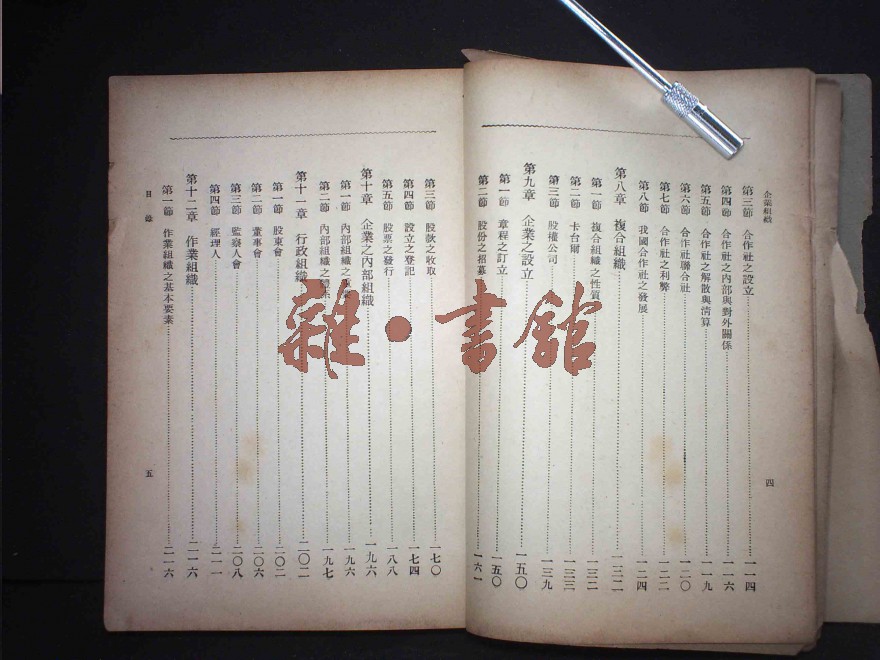 企業組織
第三節 合作社之設立……一一四
第四節 合作社之內部與對外關係……一一六
第五節 合作社之解散與清算……一一九
第六節 合作社聯合社……一二〇
第七節 合作社之利弊……一二二
第八節 我國合作社之發展……一二四
第八章 複合組織……一三二
第一節 複合組織之性質……一三二
第二節 卡台爾……一三三
第三節 股權公司……一三九
第九章 企業之設立……一五〇
第一節 章程之訂立……一五〇
第二節 股份之招募……一六一
四
第三節 股款之收取……一七〇
第四節 設立之登記……一七四
第五節 股票之發行……一八八
第十章 企業之內部組織……一九六
第一節 內部組織之……一九六
第二節 內部組織之……一九七
第十一章 行政組織……二〇二
第一節 股東會……二〇二
第二節 董事會……二〇六
第三節 監察人會……二〇八
第四節 經理人……二一一
第十二章 作業組織……二一六
第一節 作業組織之基本要素……二一六
目錄
五
雜·書館